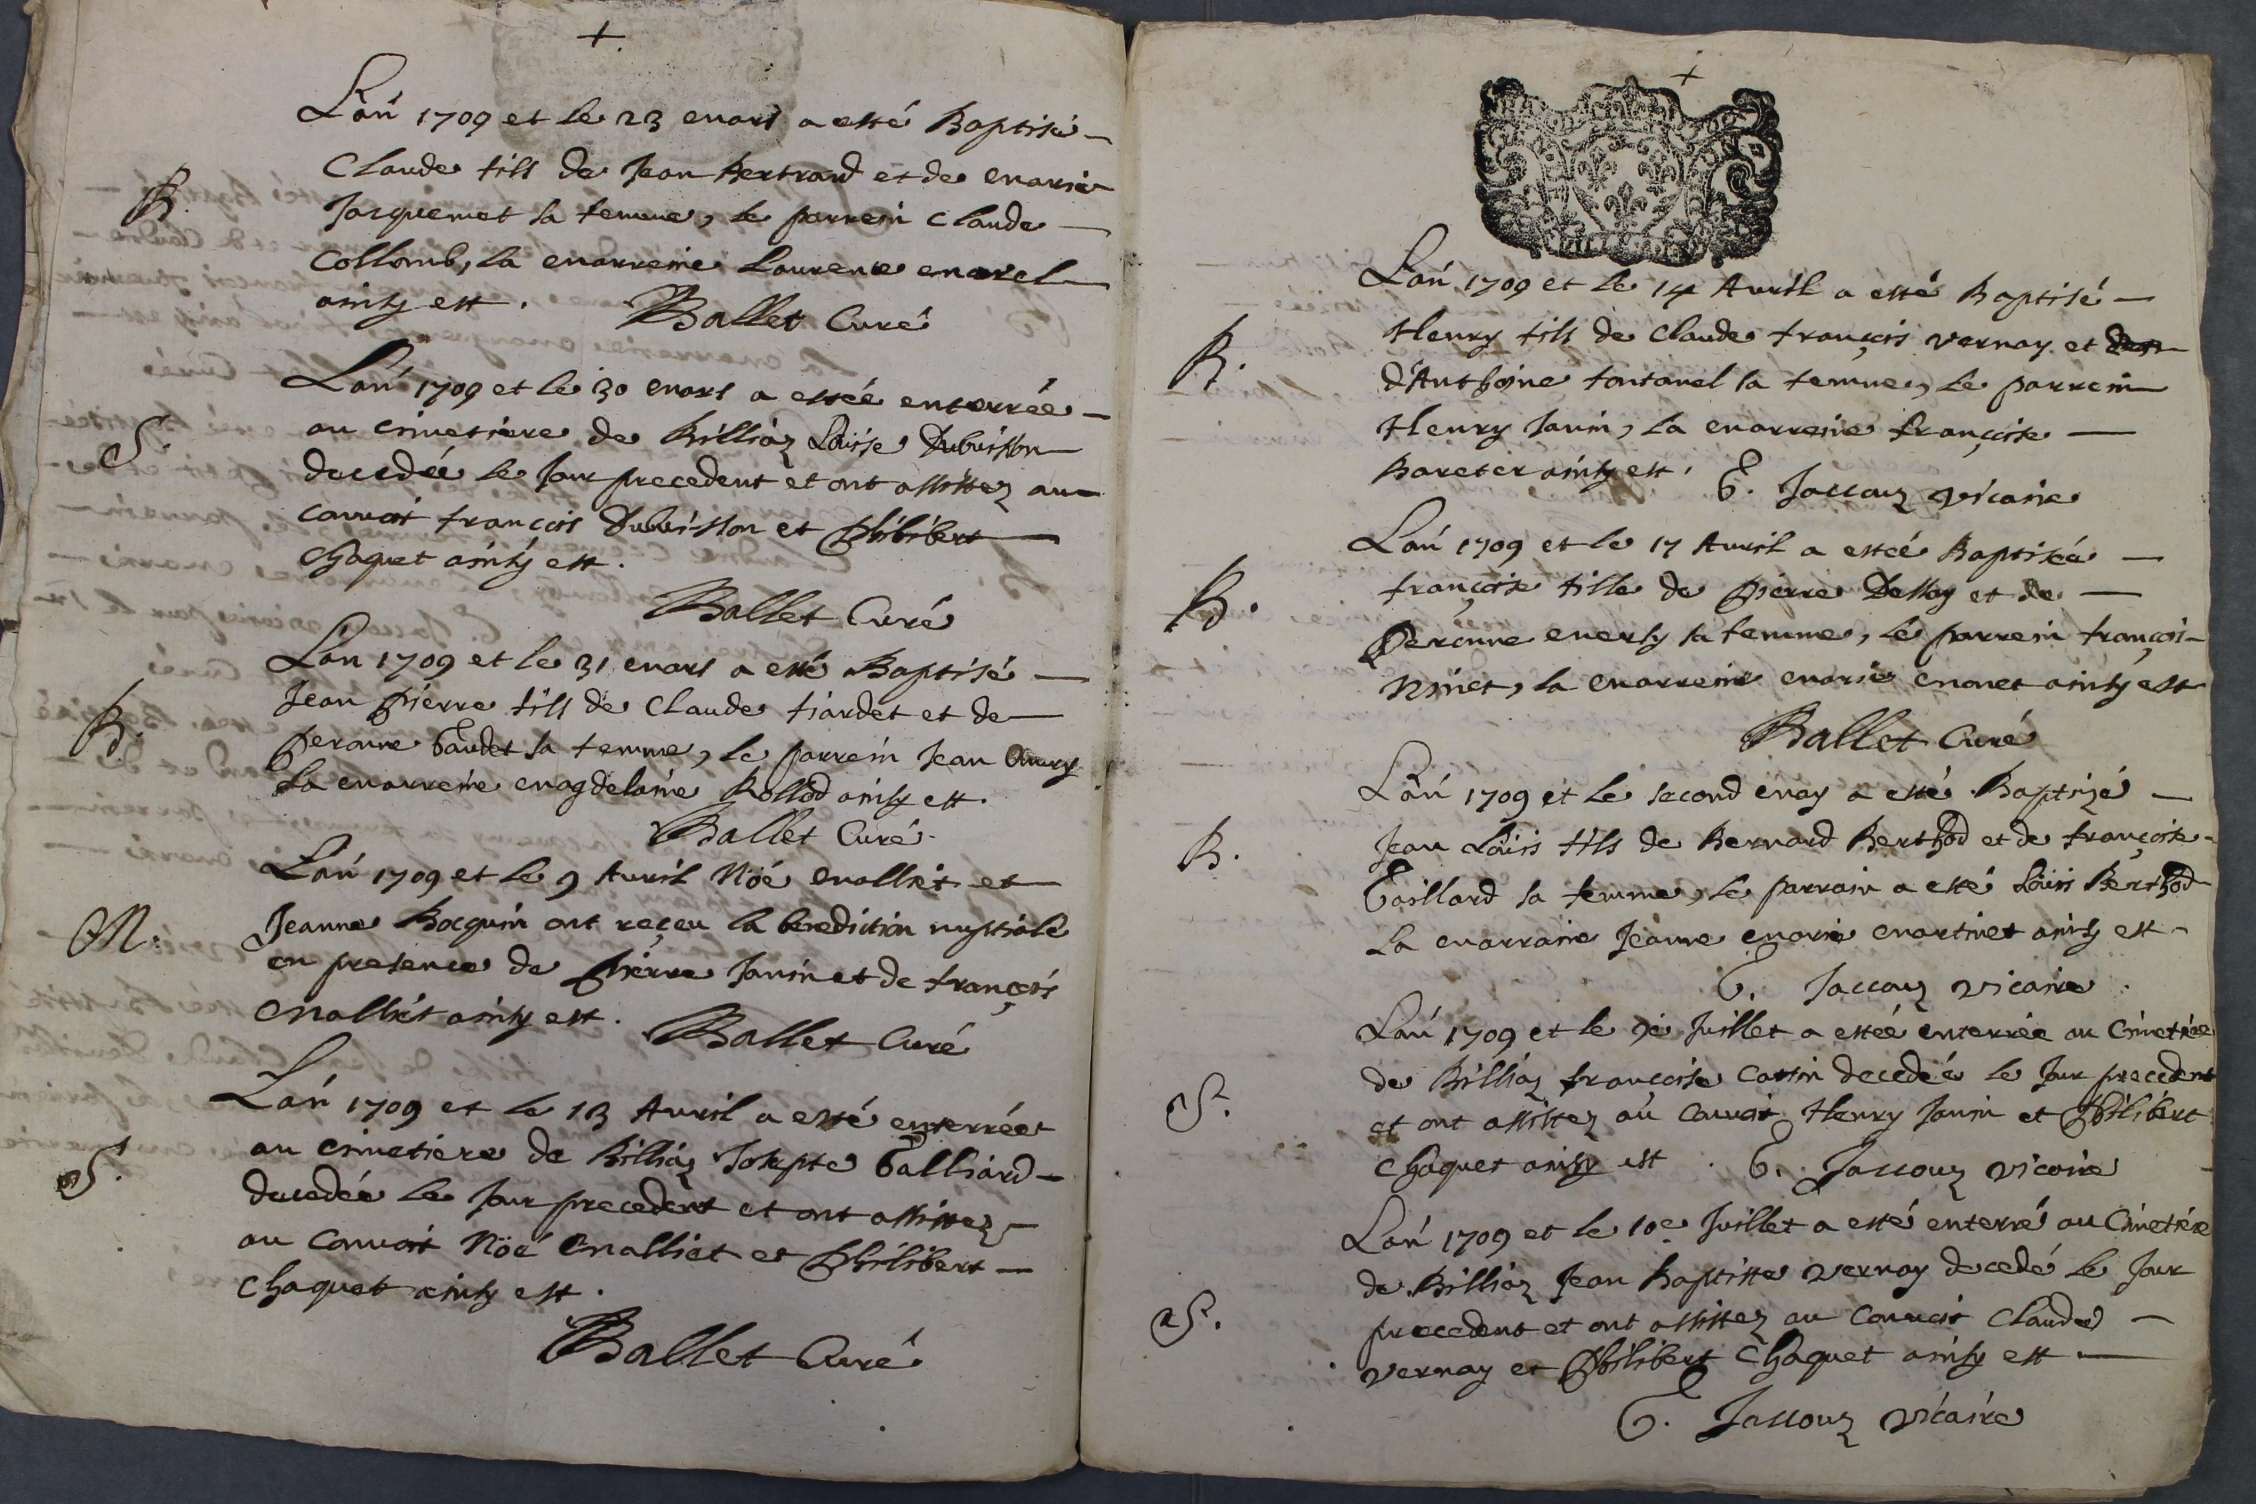 +
L'an 1709 et le 23 mars a esté Baptisé
B.
Claude fils de Jean Bertrand et de marie
Jacquemet sa femme, le parrein Claude
Collomb, la marreine Laurence morel
ainsy est. Ballet Curé
L'an 1709 et le 30 mars a estée enterrée
S.
au cimetiere de Billiaz Loüise Dubuisson
decedée le Jour precedent et ont assistez au
convoit françois Dubuisson et Philibert
Chaquet ainsy est.
Ballet Curé
L'an 1709 et le 31 mars a esté Baptisé
B.
Jean Pierre fils de Claude fiardet et de
Peronne Gaudet sa femme, le parrein Jean
la marreine magdelaine Rollod ainsy est.
Ballet Curé
L'an 1709 et le 9 Avril Nöé malliet et
M.
Jeanne Bocquin ont reçeu la benediction nuptiale
en presence de Pierre Janin et de françois
malliet ainsy est.
Ballet Curé
L'an 1709 et le 13 Avril a esté enterrée
S.
au cimetiere de Billiaz Josepte Galliard
decedée le Jour precedent et ont assistez
au Convoit Nöé malliet et Philibert
Chaquet ainsy est.
Ballet Curé
+
L'an 1709 et le 14 Avril a esté Baptisé
B.
Henry fils de Claude françois vernay et
d'Anthoine fontanel sa femme, le parrein
Henry Janin, la marreine françoise
Bareter ainsy est. G. Jaccouz vicaire
L'an 1709 et le 17 Avril a estée Baptisée
B.
françoise fille de Pierre Dessay et de
Peronne mersy sa femme, le parrein françois
Ninet, la marreine marie monet ainsy est
Ballet Curé
L'an 1709 et le second may a esté Baptizé
B.
Jean Loüis fils de Bernard Berthod et de françoise
Gaillard sa femme, le parrain a esté Loüis Berthod
la marraine Jeanne marie martinet ainsy est
G. Jaccouz vicaire
L'an 1709 et le 9e Juillet a estée enterrée au Cimetiere
S.
de Billiaz françoise Cattin decedée le Jour precedent
et ont assistez au Convoit Henry Janin et Philibert
Chaquet ainsy est. G. Jaccouz vicaire
L'an 1709 et le 10e Juillet a esté enterré au Cimetiere
S.
de Billiaz Jean Baptiste vernay decedé le Jour
precedent et ont assistez au Convoit Claude
vernay et Philibert Chaquet ainsy est
G. Jaccouz vicaire